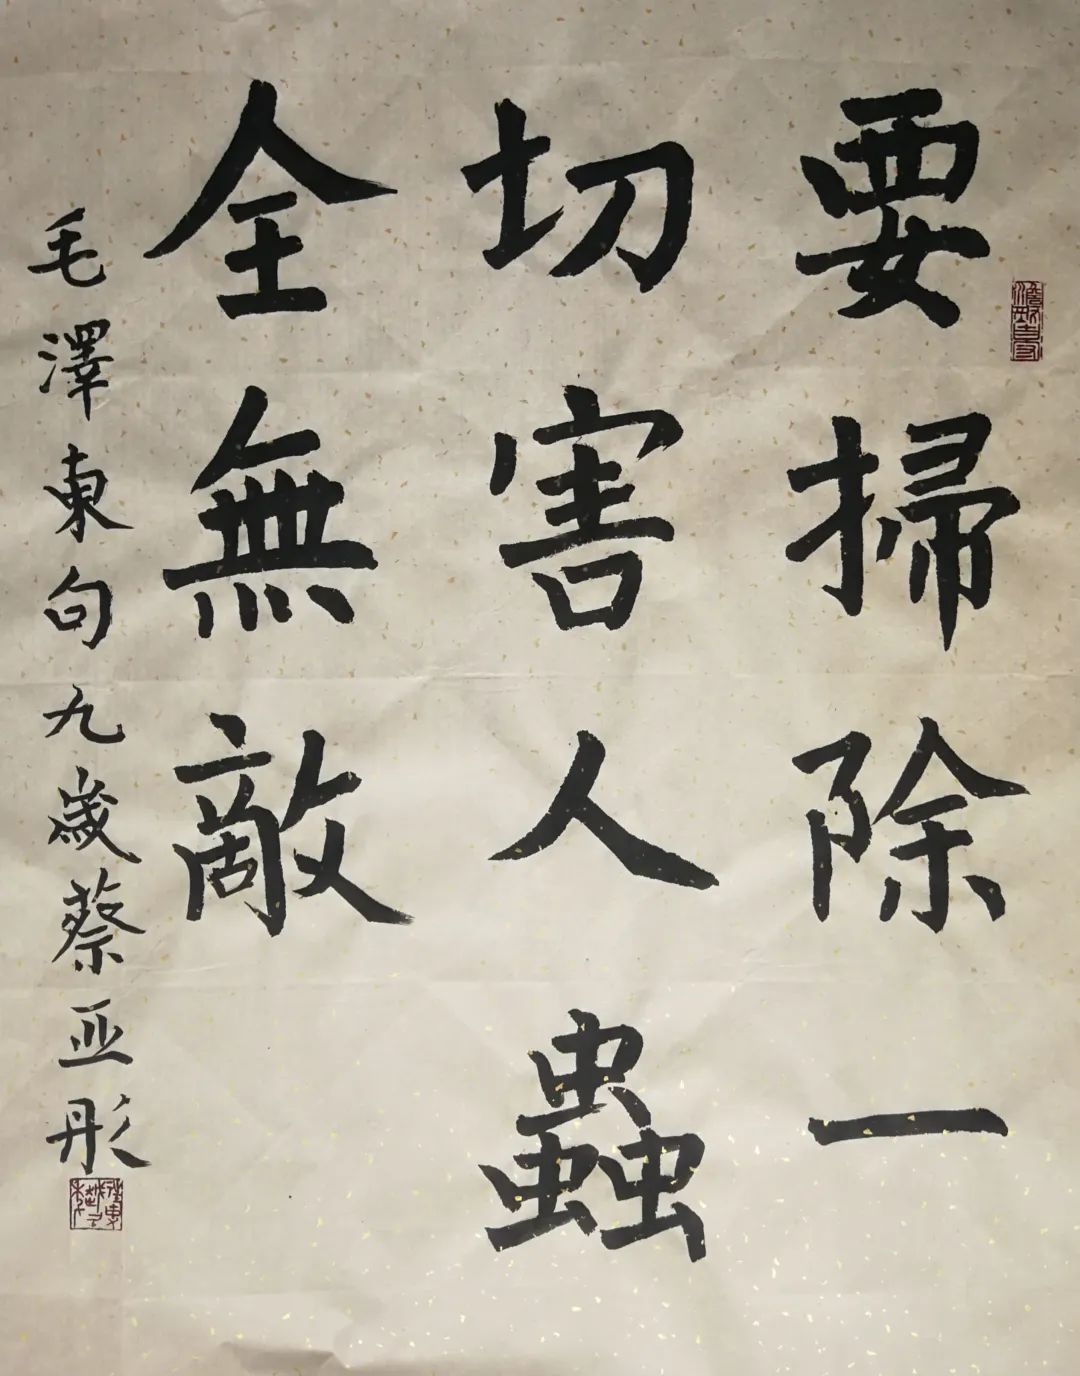 要掃除一
切害人蟲
全無敵
毛澤東句九歲蔡亚彤